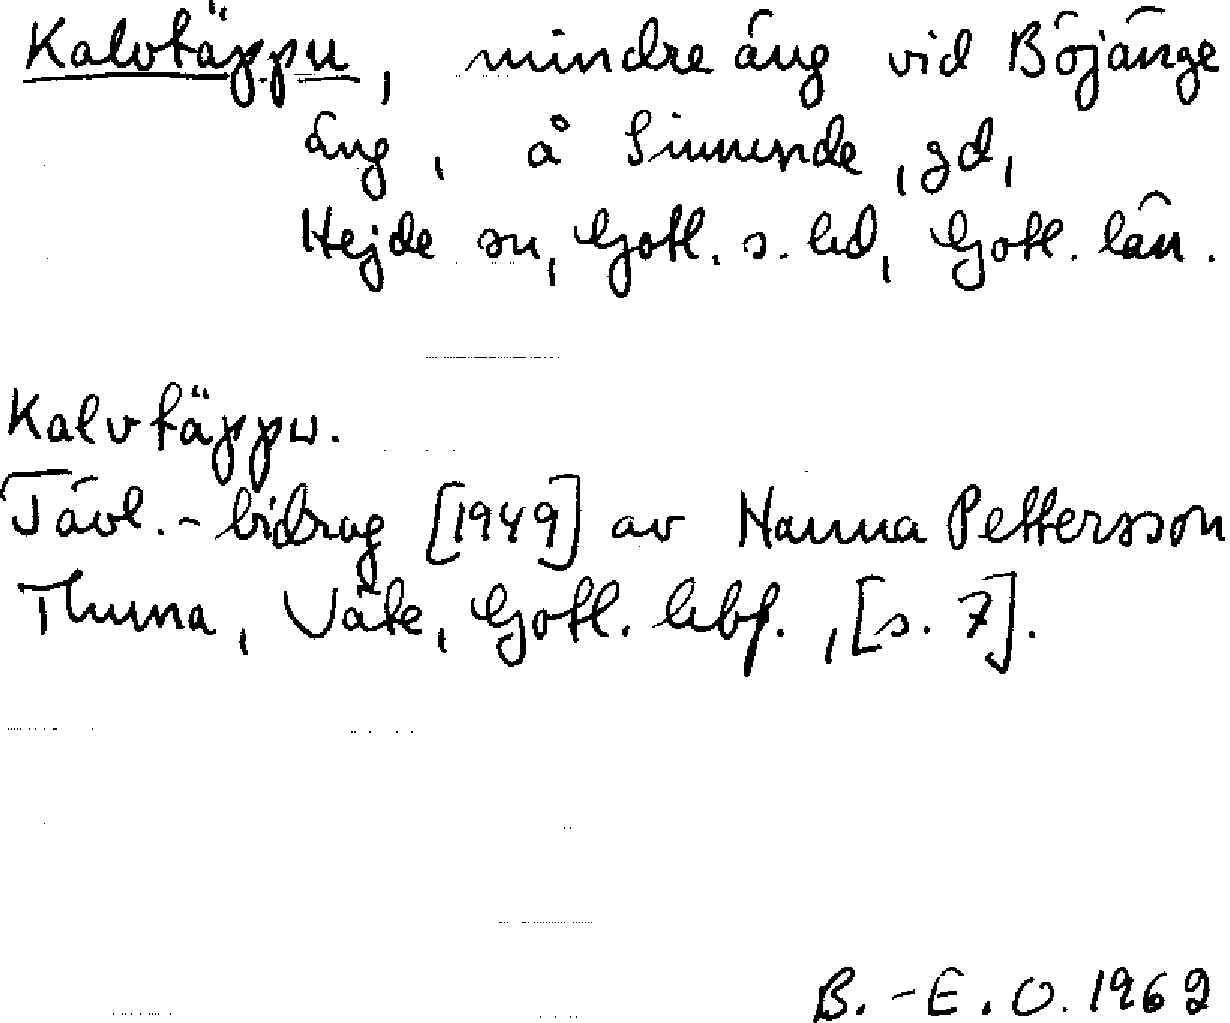 Kalvtäppu, mindre äng vid Böjänge
äng, å Simunde, gd,
Hejde sn, Gotl. s. hd, Gotl. län.
Kalvtäppu.
Tävl.-bidrag [1949] av Hanna Pettersson
Väte, Gotl. hbf., [s. 7].
B.-E. O. 1962